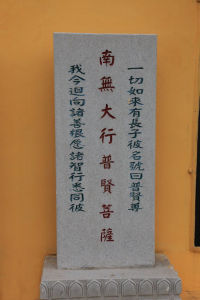 一切如來有長子彼名號曰普賢尊
南無大行普賢菩薩
我今迴向諸善根願諸智行悉同彼